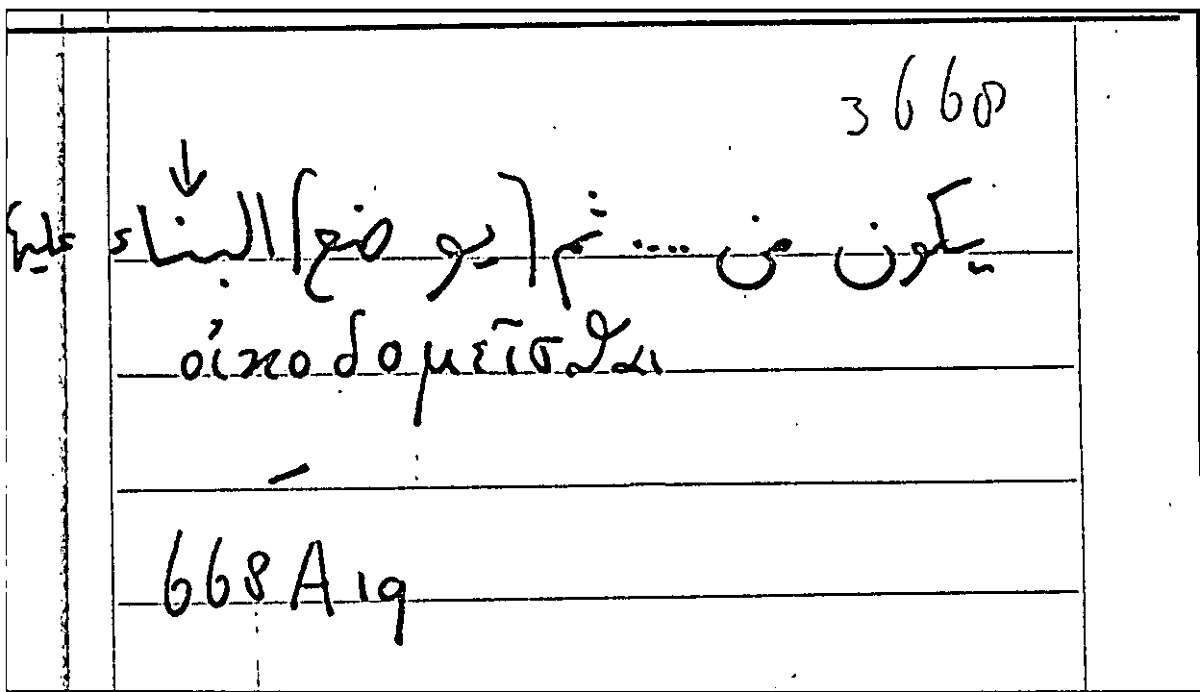 3668
↓
يكون من .... ثم [يوضع] البناء عليها
οἰκοδομεῖσθαι
–
668 A 19